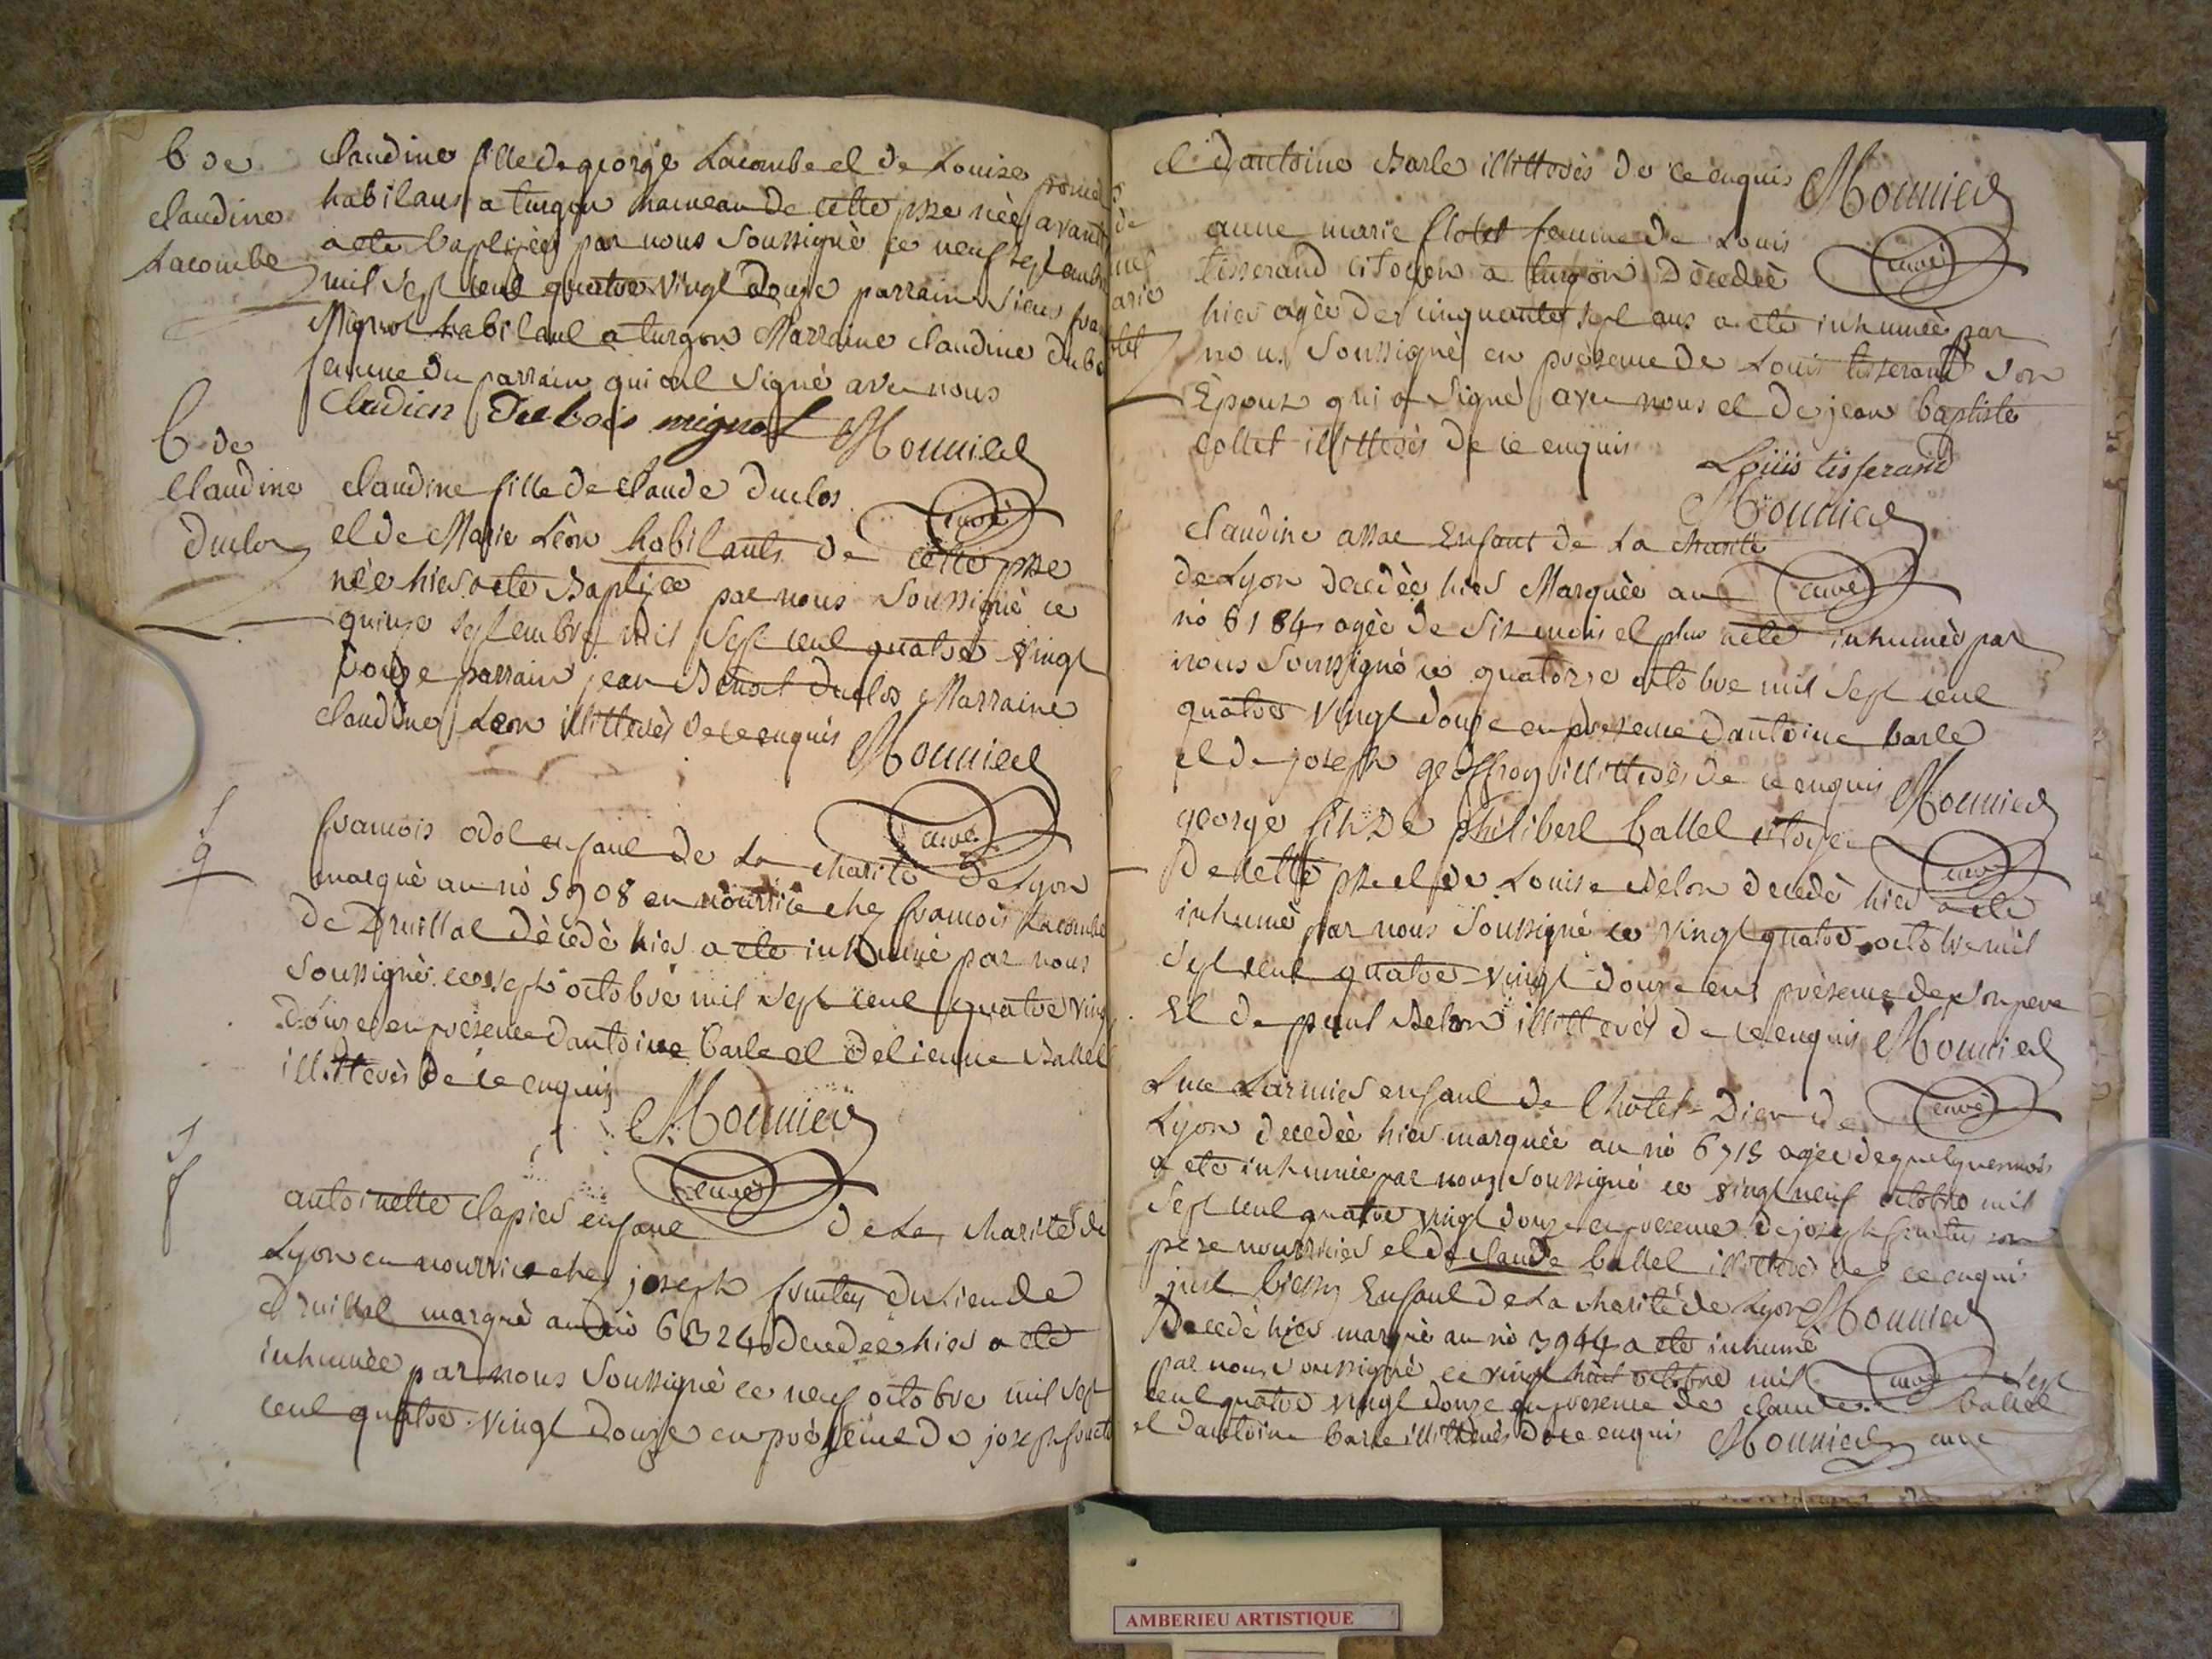 b de
claudine
Lacombe
claudine fille de george Lacombe et de Louise
habitans a turgon hameau de cette psse née avant
a ete baptizée par nous soussigné ce neuf septembre
mil sept cent quatre vingt douze parrain sieur fra
Mignot habitant a turgon Marraine claudine dubo
femme du parrain qui ont signé avec nous
Claudien Dubois mignot Mounier
curé
b de
Claudine
Duclos
claudine fille de claude duclos
et de Marie Léon habitants de cette psse
née hier a ete Baptizée par nous soussigné ce
quinze septembre mil sept cent quatre vingt
douze parrain jean Benoit duclos Marraine
claudine Leon illitterés de ce enquis Mounier
curé
francois odol enfant de la charité de Lyon
marqué au nò 5908 en nourrice chez francois Lacombe
de Druillat décedé hier a ete inhumé par nous
soussigné ce sept octobre mil sept cent quatre vingt
douze en présence dantoine barle et detienne Ballet
illitterés de ce enquis
Mounier
curé
antoinette clapier enfant de La charité de
Lyon en nourrice chez joseph fruitus du Lieu de
druillat marqué au nò 6324 decedée hier a ete
inhumée par nous soussigné ce neuf octobre mil sept
cent quatre vingt douze en présence de joseph fruitu
et dantoine Barle illitterés de ce enquis Mounier
curé
anne marie flotet femme de Louis
tisserand citoyen a turgon Décedeé
hier agée de cinquante sept ans a eté inhumée par
nous soussigné en présence de Louis tisserand son
Epoux qui a signé avec nous et de jean baptiste
collet illitterés de ce enquis
Loüis tisserand
Mounier
curé
claudine assac Enfant de La charité
de Lyon decedée hier Marquée au
nò 6184 agée de six mois et plus a ete inhumée par
nous soussigné ce quatorze octobre mil sept cent
quatre vingt douze en presence dantoine barle
et de joseph geoffroy illitterés de ce enquis Mounier
curé
george fils de philibert ballet citoyen
de cette psse et de Louise Belon decedé hier a ete
inhumé par nous soussigné ce vingt quatre octobre mil
sept cent quatre vingt douze en présence de son pere
Et de paul Belon illitterés de ce enquis Mounier
curé
Luce Larmier enfant de l'hotel-Dieu de
Lyon decedée hier marquée au nò 6715 agée de quelques mois
a ete inhumée par nous soussigné ce vingt neuf octobre mil
sept cent quatre vingt douze en presence de joseph fruitus son
pere nourricier et de claude ballet illitterés de ce enquis
Mounier
curé
just Enfant de La charité de Lyon
Decedé hier marqué au nò 3944 a ete inhumé
par nous soussigné ce vingt huit octobre mil sept
cent quatre vingt douze en presence de claude ballet
et dantoine barle illitterés de ce enquis Mounier curé
AMBERIEU ARTISTIQUE